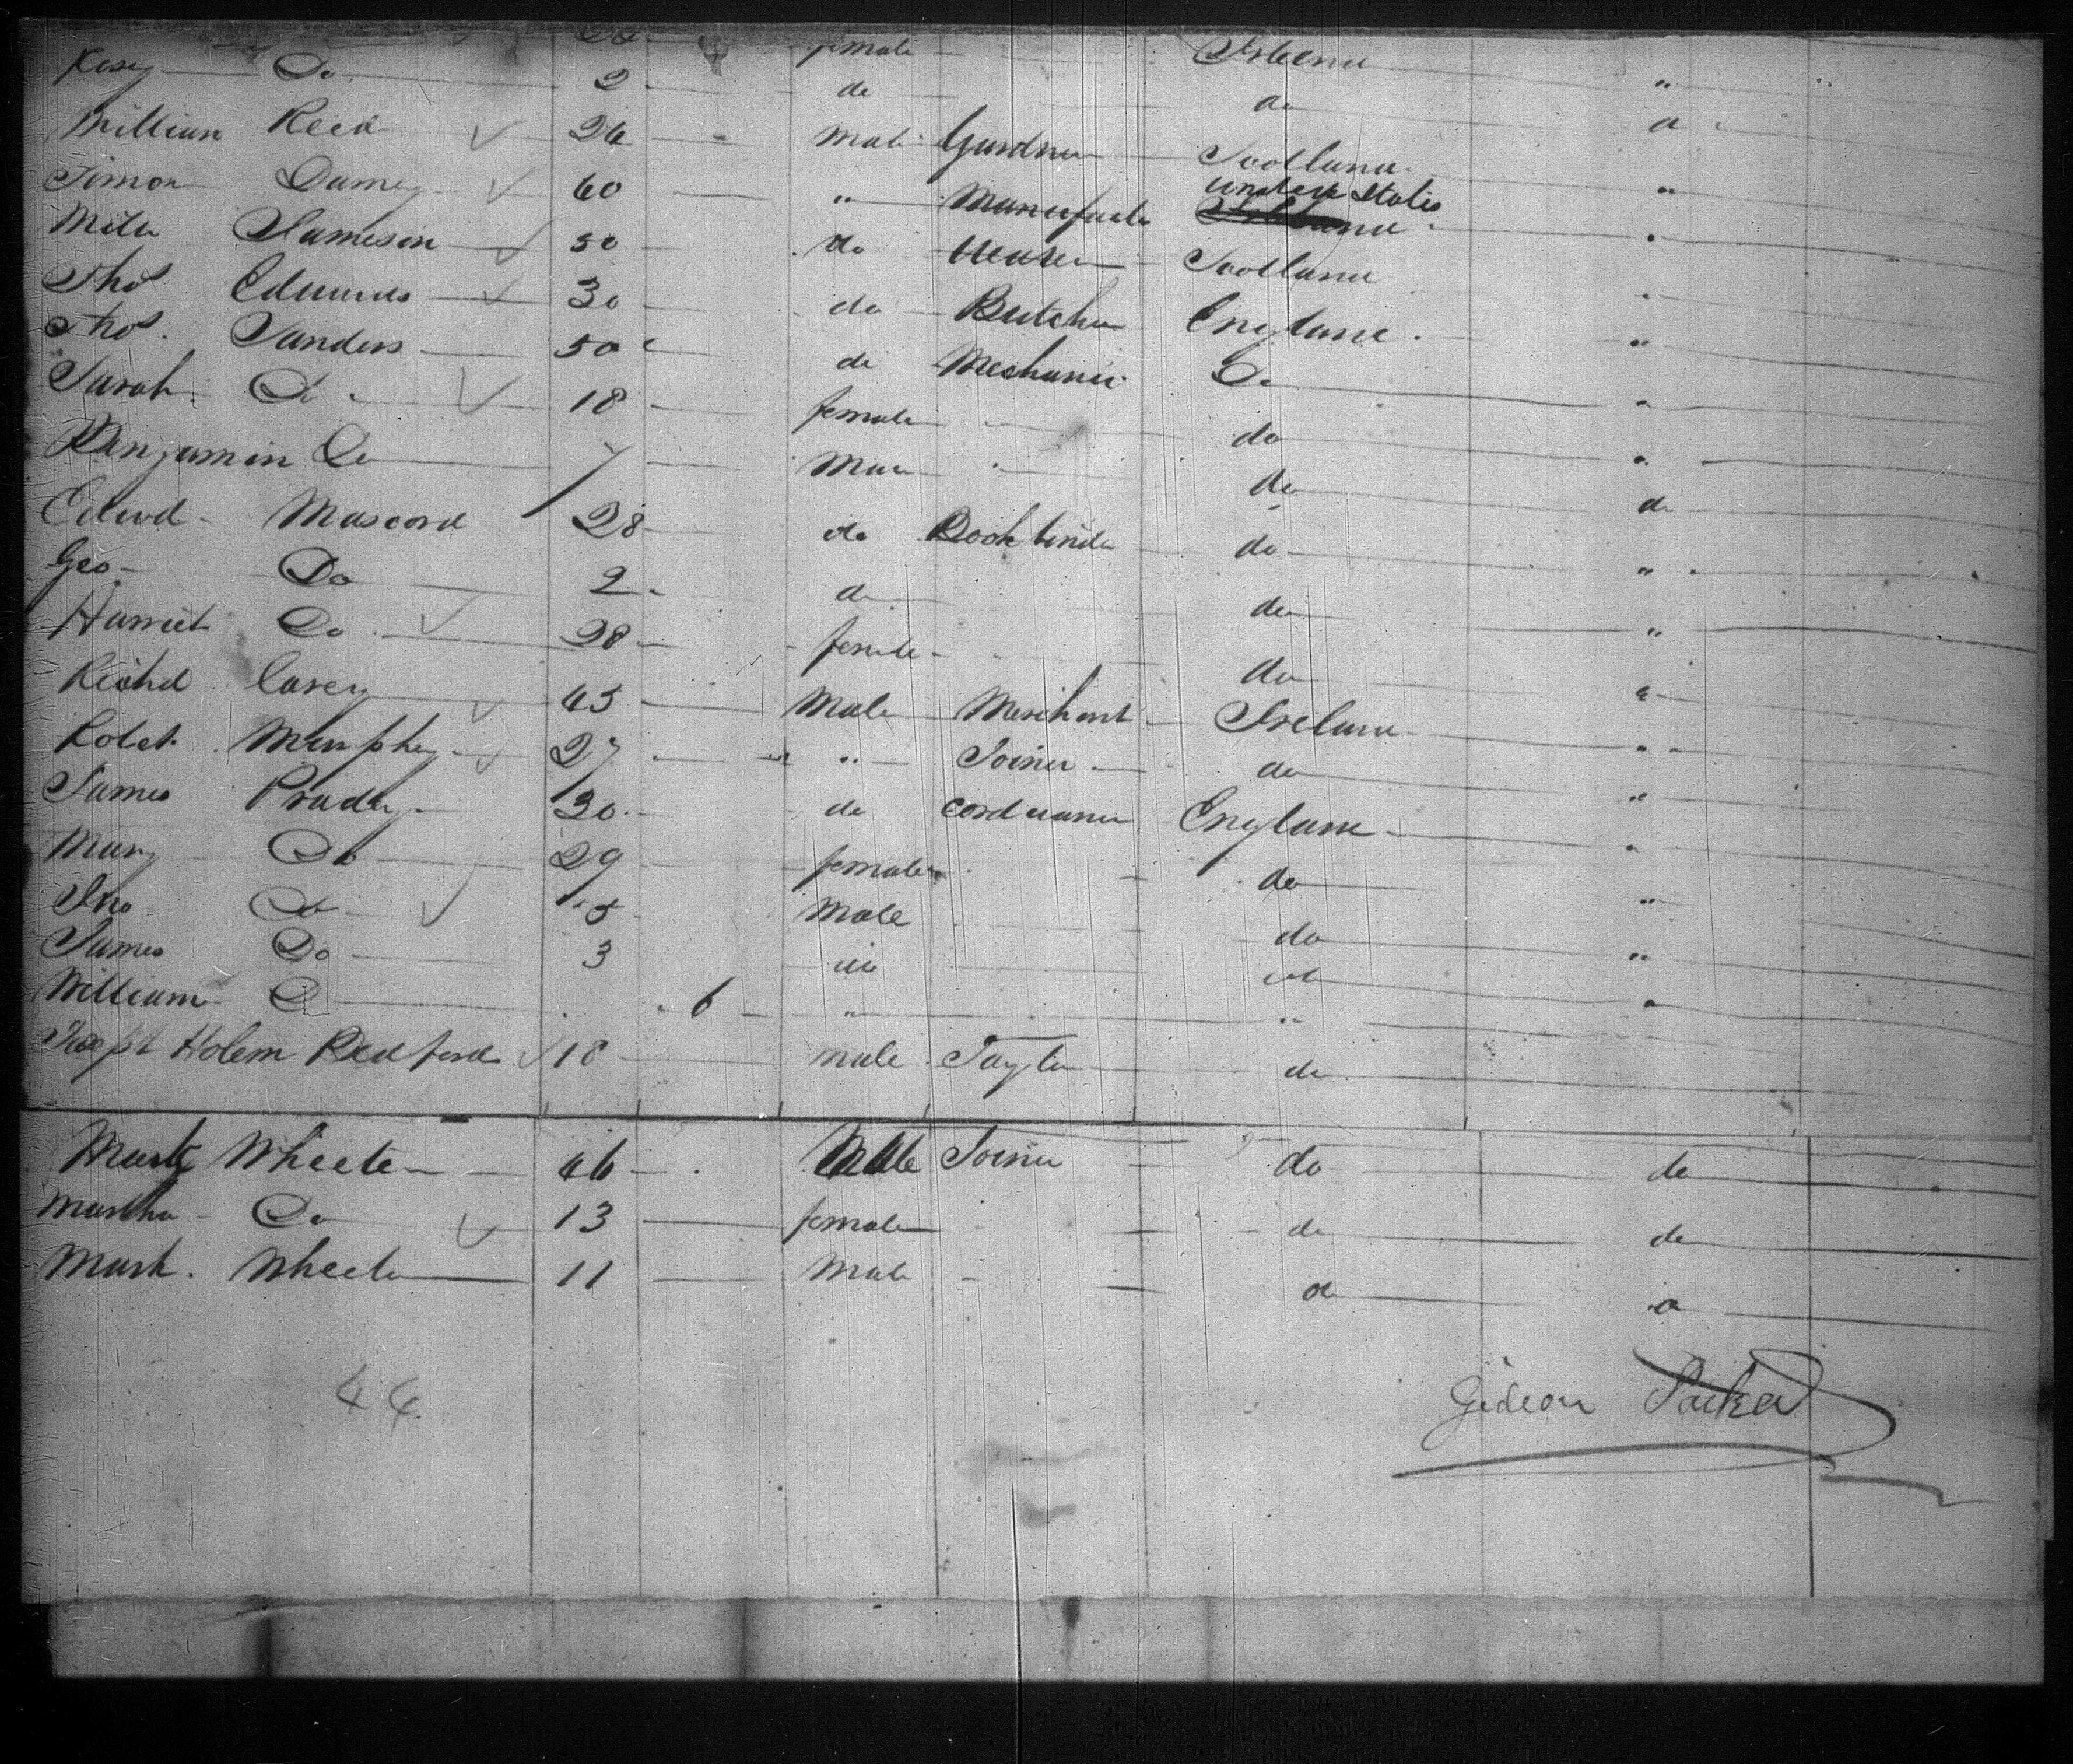 female Ireland "
Kesy Do 2 do do
William Reed 26 Male Gardner Scotland
Simon 60 " Manufactr United States
Jameson 50 do Weaver Scotland
Thos Edwards 30 do Butcher England
Thos. Sanders 50 do Mechanic Do "
Sarah Do 18 female do "
Benjamin Do 7 Male do do
Edwd Mascord 28 do Book binder do "
Geo Do 2 do do "
Harriet Do 28 female do "
Richd Carey 45 Male Merchant Ireland "
Robt. Murphey 27 " Joiner do "
James Pradey 30 do Cordwaner England "
Mary Do 29 female do "
Jno Do 5 Male do "
James Do 3 do do "
William Do 6 " "
Holem Redford 18 male Taylor do
Mark Wheeler 46 Male Joiner do do
Martha Do 13 female do do
Mark. Wheeler 11 Male do do
44
Gideon Parker